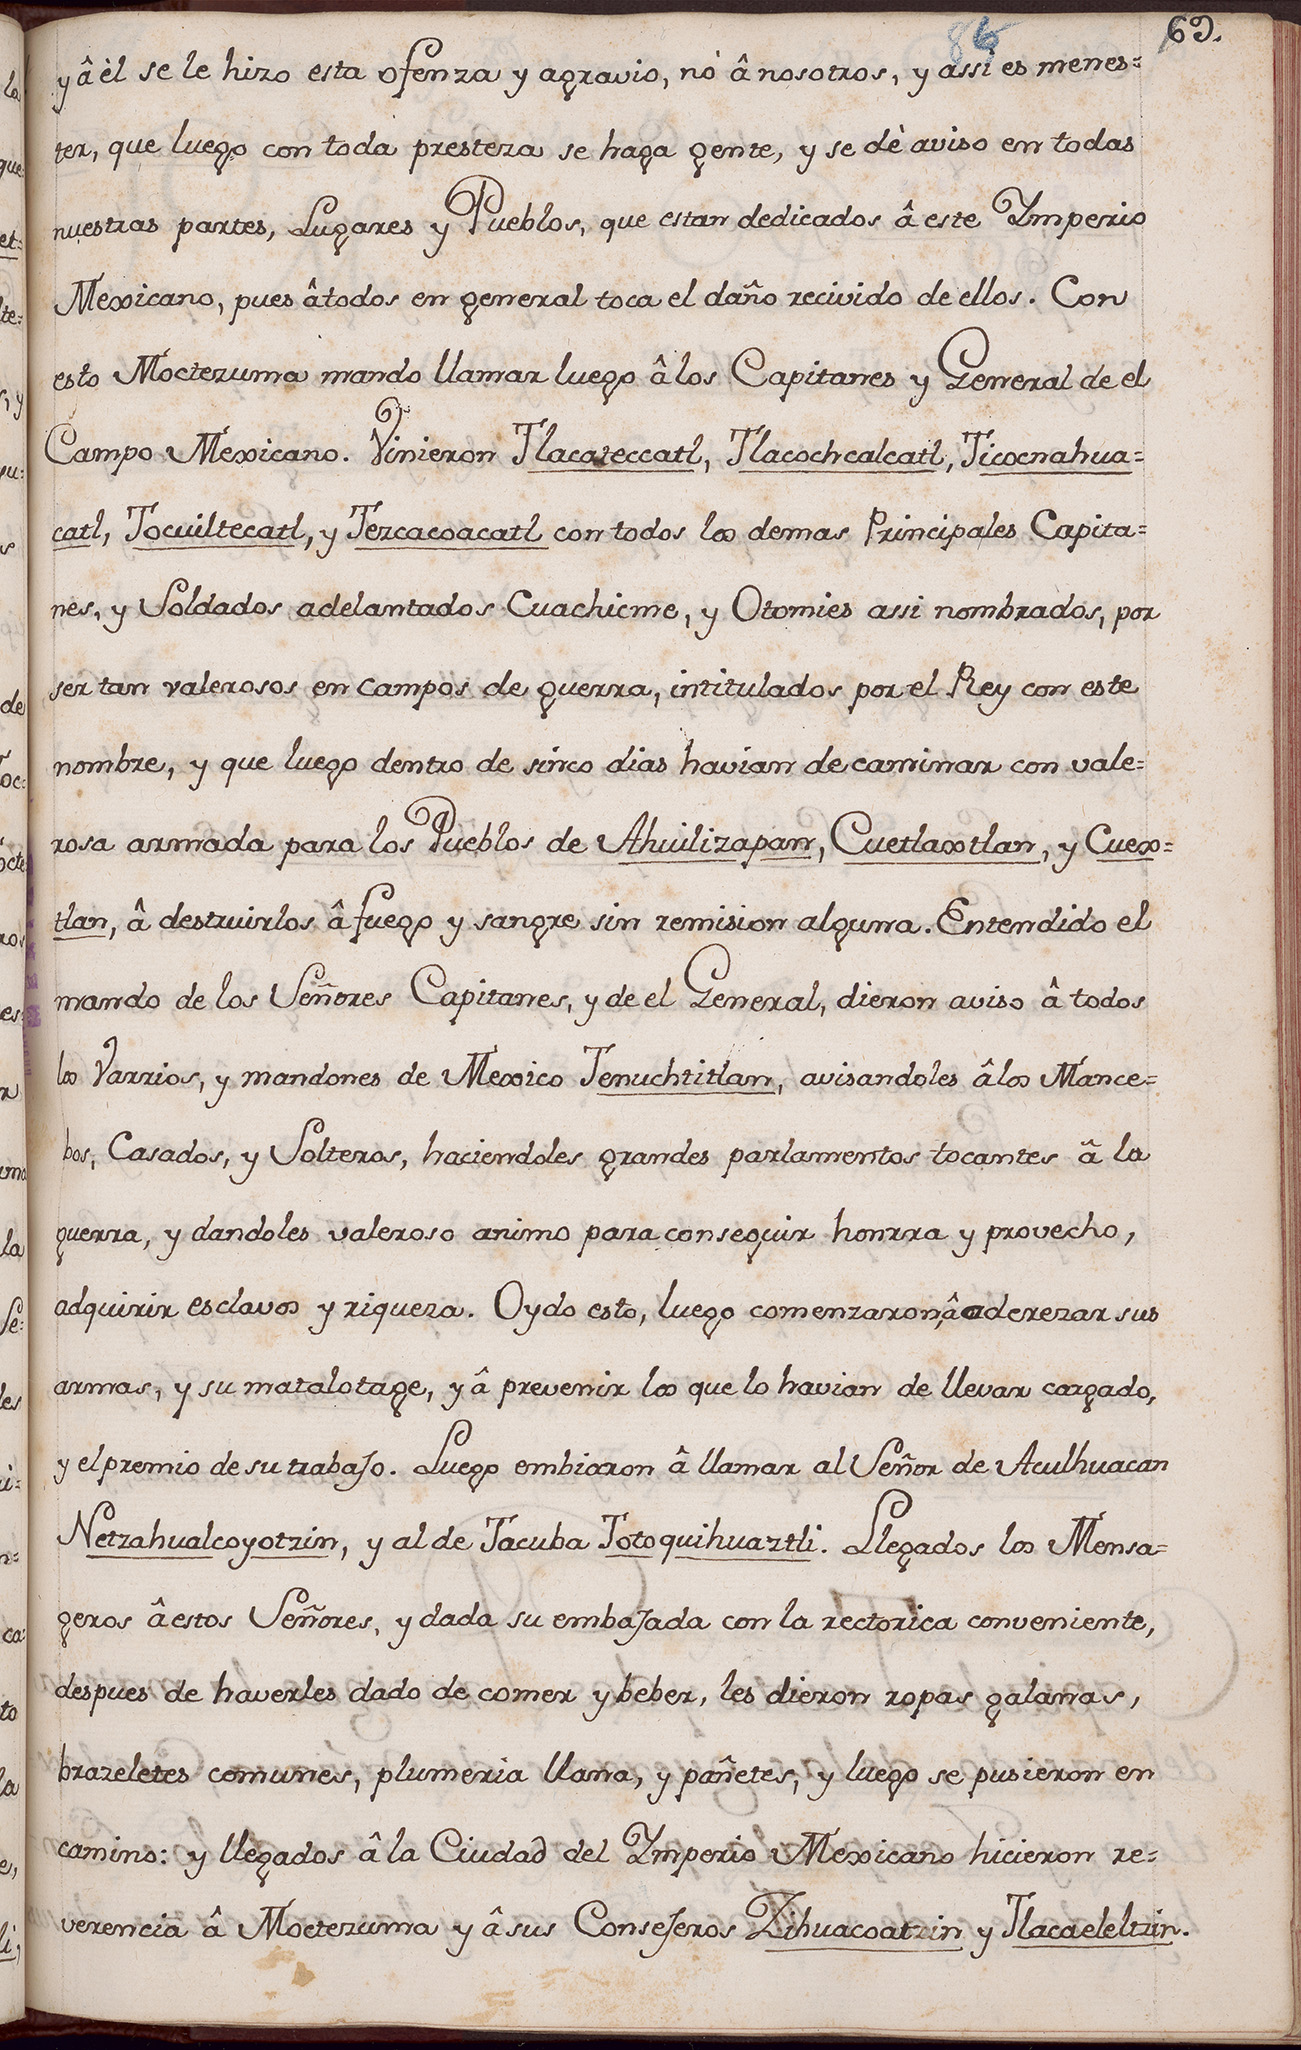 86 69.
y â èl se le hizo esta ofenza y agravio, nò â nosotros, y assi es menes=
ter, que luego con toda presteza se haga gente, y se dè aviso en todas
nuestras partes, Lugares y Pueblos, que estan dedicados â este Ymperio
Mexicano, pues âtodos en general toca el daño recivido de ellos. Con
esto Moctezuma mando llamar luego âlos Capitanes y General de el
Campo Mexicano. Vinieron Tlacateccatl, Tlacochcalcatl, Ticocnahua=
catl, Tocuiltecatl, y Tezcacoacatl con todos los demas Principales Capita=
nes, y Soldados adelantados Cuachicme, y Otomies assi nombrados, por
ser tan valerosos en campos de guerra, intitulados por el Rey con este
nombre, y que luego dentro de sinco dias havian de caminar con vale=
rosa armada para los Pueblos de Ahuilizapan, Cuetlaxtlan, y Cuex=
tlan, â destruirlos â fuego y sangre sin remision alguna. Entendido el
mando de los Señores Capitanes, y de el General, dieron aviso â todos
los Varrios, y mandones de Mexico Tenuchtitlan, avisandoles âlos Mance=
bos, Casados, y Solteros, haciendoles grandes parlamentos tocantes â la
guerra, y dandoles valeroso animo para conseguir honrra y provecho,
adquirir esclavos y riqueza. Oydo esto, luego comenzaron, â aderezar sus
armas, y su matalotage, y â prevenir los que lo havian de llevar cargado,
y el premio de su trabajo. Luego embiaron â llamar al Señor de Aculhuacan
Netzahualcoyotzin, y al de Tacuba Totoquihuaztli. Llegados los Mensa=
geros âestos Señores, y dada su embajada con la rectorica conveniente,
despues de haverles dado de comer y beber, les dieron ropas galanas,
brazeletes comunes, plumeria llana, y pañetes, y luego se pusieron en
camino: y llegados â la Ciudad del Ymperio Mexicano hicieron re=
verencia â Moctezuma y âsus Consejeros Zihuacoatzin y Tlacaeleltzin.